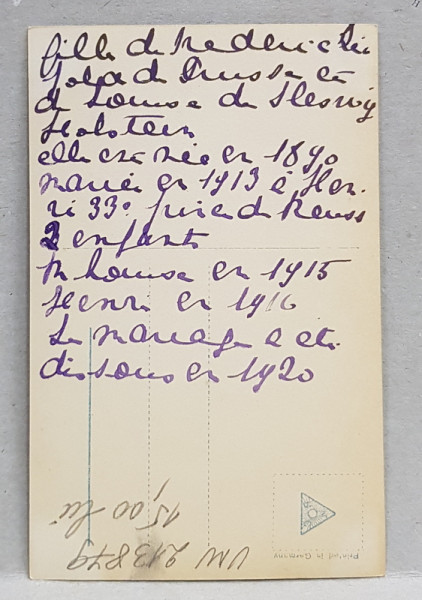 fille de Frederic Léo
pold de Prusse et
de Louise de Slesvig
Holstein
elle est née en 1890
mariée en 1913 à Hen-
ri 33e prince de Reuss
2 enfants
M Louise en 1915
Henri en 1916
Le mariage a été
dissous en 1920
15,00 lei
213879
Printed in Germany